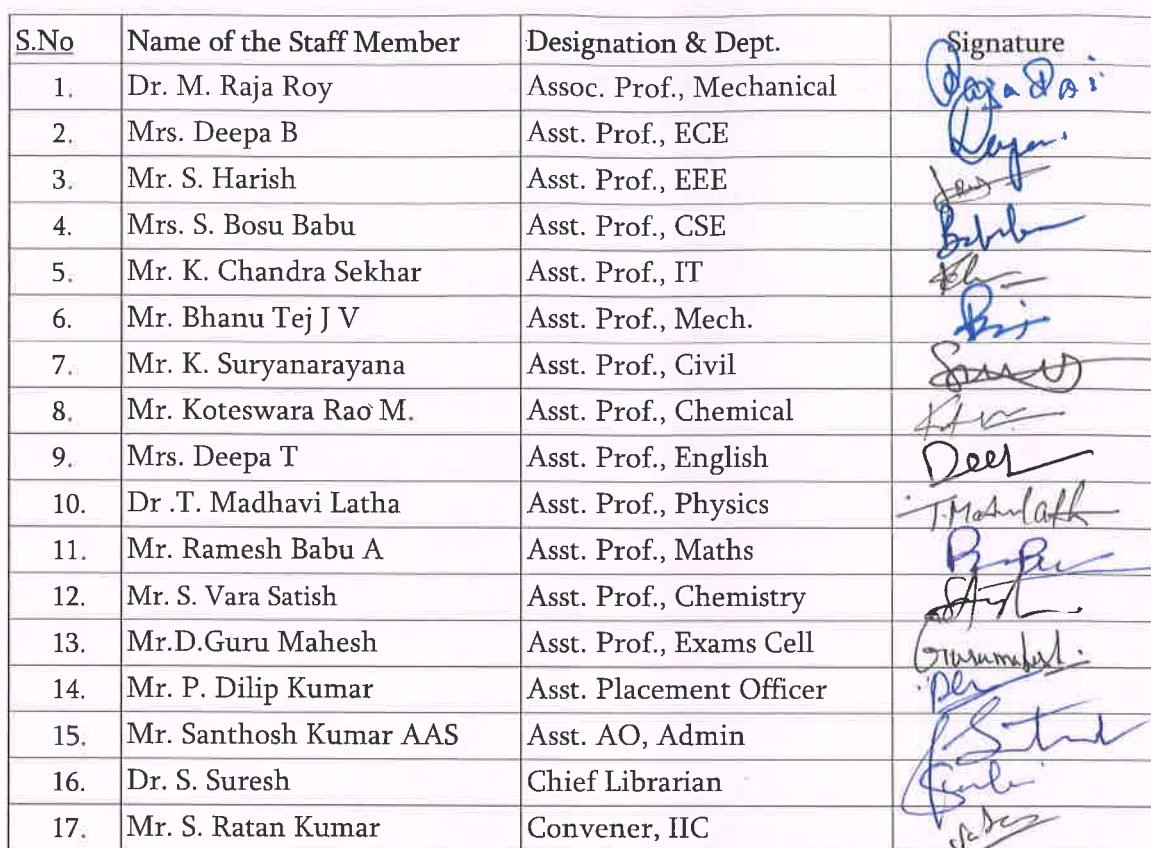 S.No Name of the Staff Member Designation & Dept. Signature
1. Dr. M. Raja Roy Assoc. Prof., Mechanical
2. Mrs. Deepa B Asst. Prof., ECE
3. Mr. S. Harish Asst. Prof., EEE
4. Mrs. S. Bosu Babu Asst. Prof., CSE
5. Mr. K. Chandra Sekhar Asst. Prof., IT
6. Mr. Bhanu Tej J V Asst. Prof., Mech.
7. Mr. K. Suryanarayana Asst. Prof., Civil
8. Mr. Koteswara Rao M. Asst. Prof., Chemical
9. Mrs. Deepa T Asst. Prof., English
10. Dr .T. Madhavi Latha Asst. Prof., Physics
11. Mr. Ramesh Babu A Asst. Prof., Maths
12. Mr. S. Vara Satish Asst. Prof., Chemistry
13. Mr.D.Guru Mahesh Asst. Prof., Exams Cell
14. Mr. P. Dilip Kumar Asst. Placement Officer
15. Mr. Santhosh Kumar AAS Asst. AO, Admin
16. Dr. S. Suresh Chief Librarian
17. Mr. S. Ratan Kumar Convener, IIC